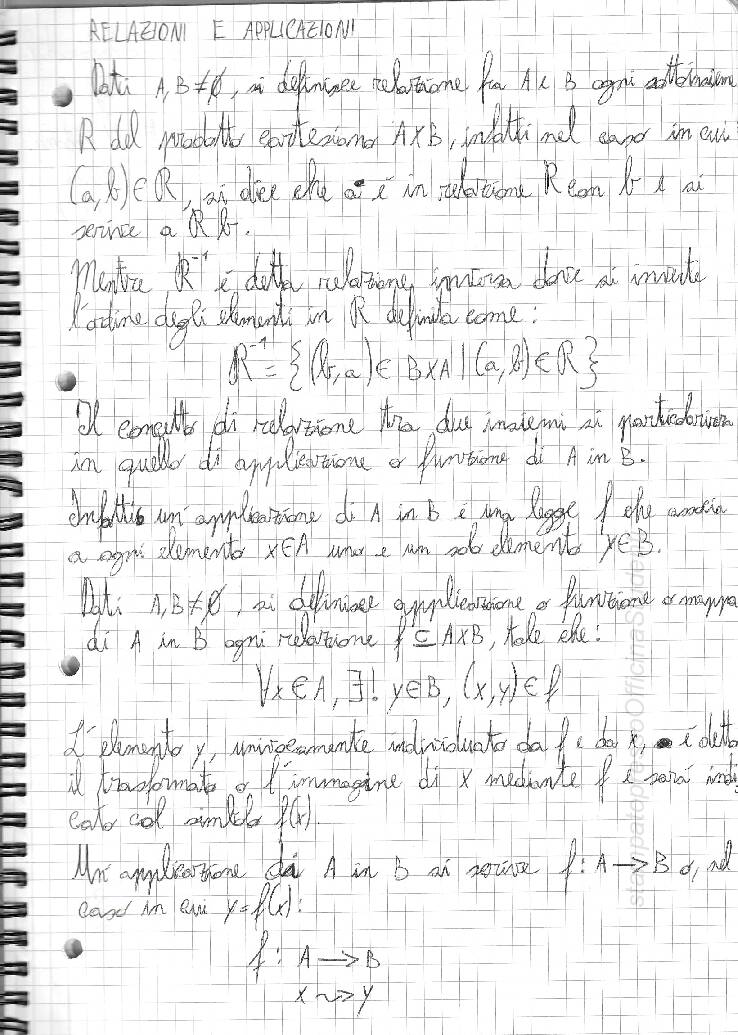 RELAZIONI E APPLICAZIONI
Dati A, B ≠ ∅, si definisce relazione fra A e B ogni sottoinsieme
R del prodotto cartesiano A×B, infatti nel caso in cui
(a, b) ∈ R, si dice che a è in relazione R con b e si
scrive a R b.
Mentre R⁻¹ è detta relazione inversa dove si inverte
l'ordine degli elementi in R definita come:
R⁻¹ = {(b, a) ∈ B×A | (a, b) ∈ R}
Il concetto di relazione tra due insiemi si particolarizza
in quello di applicazione o funzione di A in B.
Infatti un'applicazione di A in B è una legge f che associa
a ogni elemento x∈A uno e un solo elemento y∈B.
Dati A, B ≠ ∅, si definisce applicazione o funzione o mappa
di A in B ogni relazione f ⊆ A×B, tale che:
∀x ∈ A, ∃! y ∈ B, (x, y) ∈ f
L'elemento y, univocamente individuato da f e da x, è detto
il trasformato o l'immagine di x mediante f e sarà indi
cato col simbolo f(x).
Un'applicazione di A in B si scrive f: A → B o, nel
caso in cui y = f(x):
f: A → B
x ⇝ y